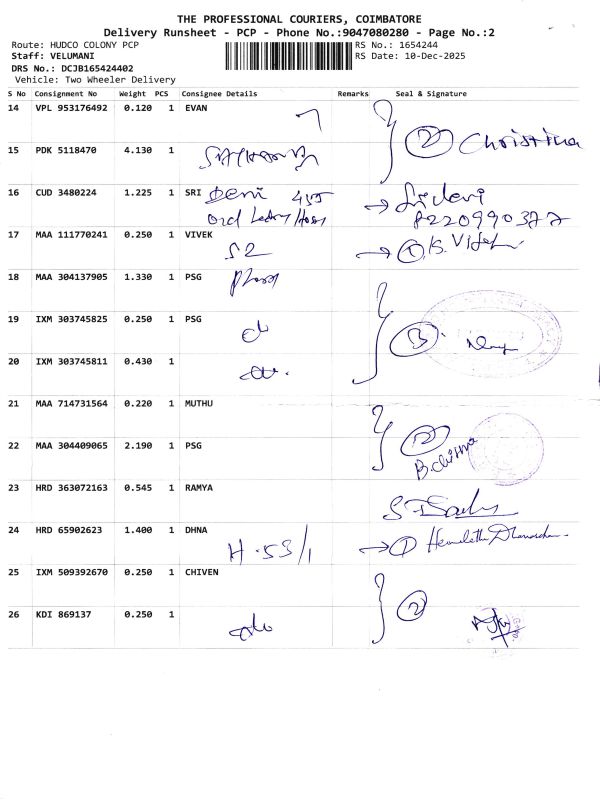 THE PROFESSIONAL COURIERS, COIMBATORE
Delivery Runsheet - PCP - Phone No.:9047080280 - Page No.:2
Route: HUDCO COLONY PCP
Staff: VELUMANI
DRS No.: DCJB165424402
Vehicle: Two Wheeler Delivery
RS No.: 1654244
RS Date: 10-Dec-2025
S No Consignment No Weight PCS Consignee Details Remarks Seal & Signature
14 VPL 953176492 0.120 1 EVAN
2 Christina
15 PDK 5118470 4.130 1
16 CUD 3480224 1.225 1 SRI Devi
8220990377
17 MAA 111770241 0.250 1 VIVEK
S2
1
18 MAA 304137905 1.330 1 PSG
19 IXM 303745825 0.250 1 PSG
3
20 IXM 303745811 0.430 1
21 MAA 714731564 0.220 1 MUTHU
2
22 MAA 304409065 2.190 1 PSG
23 HRD 363072163 0.545 1 RAMYA
24 HRD 65902623 1.400 1 DHNA
H-53/1
1
25 IXM 509392670 0.250 1 CHIVEN
2
26 KDI 869137 0.250 1